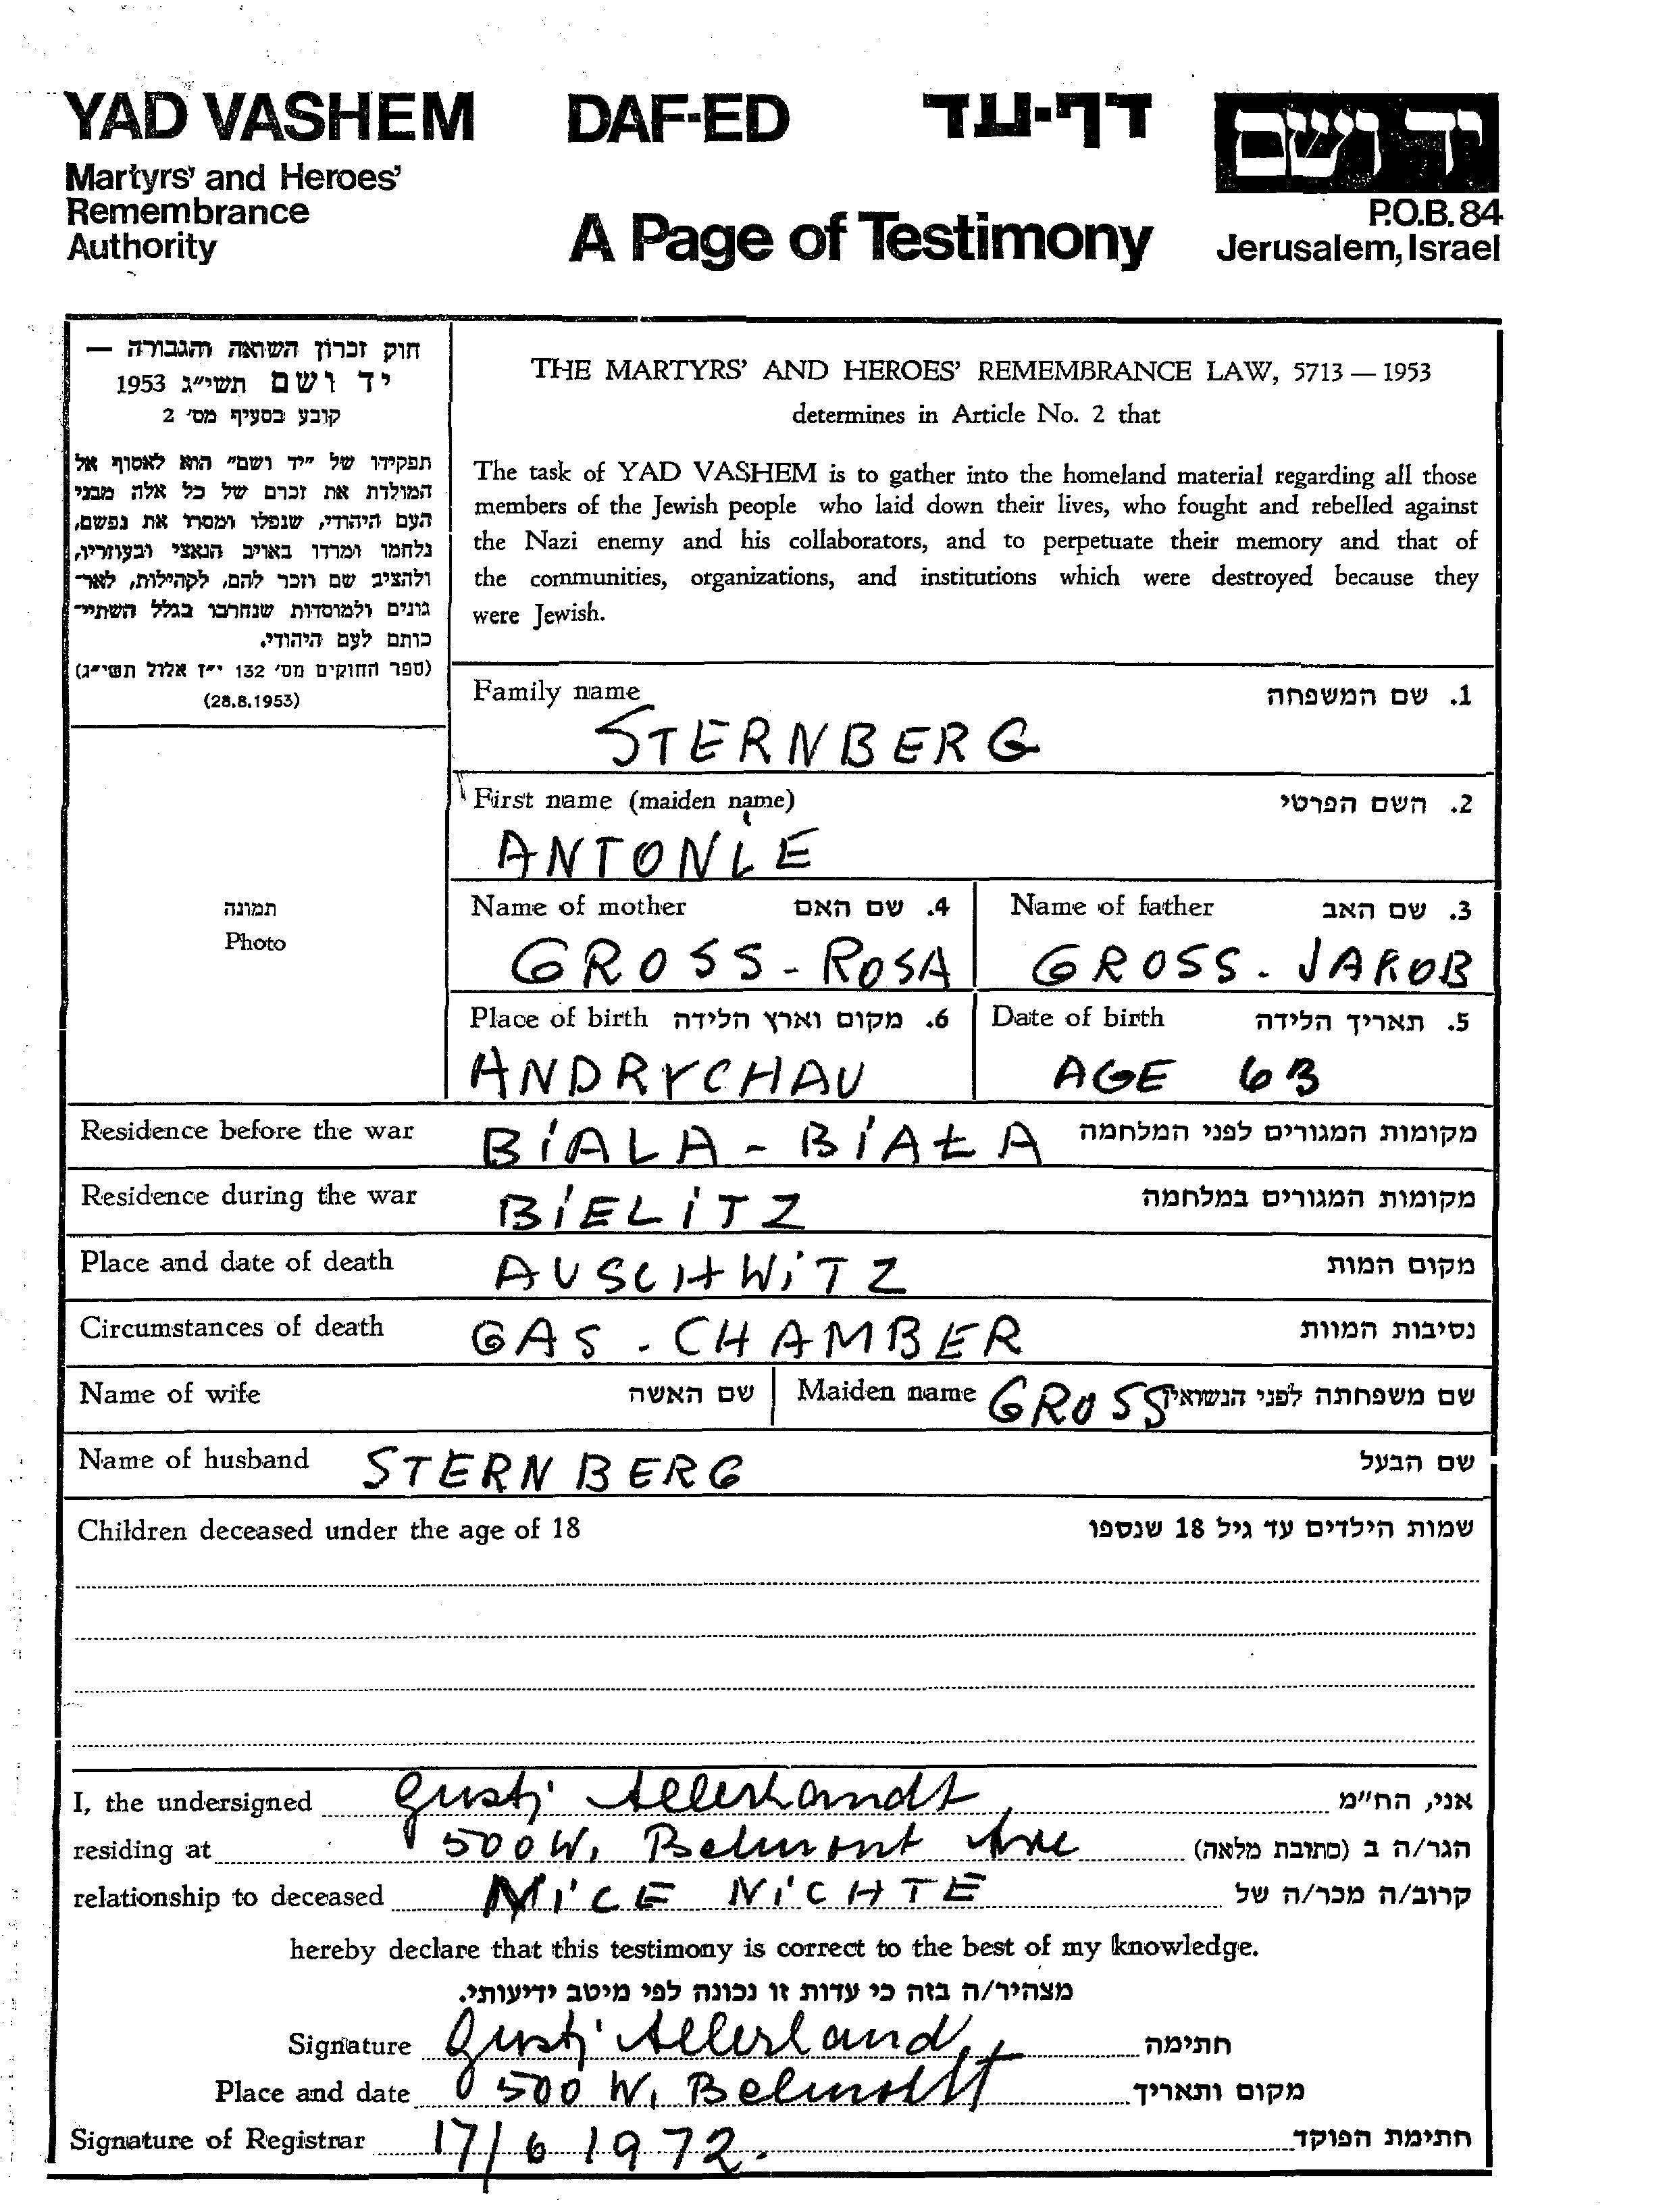 YAD VASHEM DAF-ED דף-עד יד ושם
Martyrs' and Heroes'
Remembrance
Authority
A Page of Testimony
P.O.B. 84
Jerusalem, Israel
חוק זכרון השואה והגבורה —
יד ושם תשי"ג 1953
קובע בסעיף מס' 2
תפקידו של "יד ושם" הוא לאסוף אל
המולדת את זכרם של כל אלה מבני
העם היהודי, שנפלו ומסרו את נפשם,
נלחמו ומרדו באויב הנאצי ובעוזריו,
ולהציב שם וזכר להם, לקהילות, לאר-
גונים ולמוסדות שנחרבו בגלל השתיי-
כותם לעם היהודי.
(ספר החוקים מס' 132 י"ז אלול תשי"ג)
(28.8.1953)
THE MARTYRS' AND HEROES' REMEMBRANCE LAW, 5713 — 1953
determines in Article No. 2 that
The task of YAD VASHEM is to gather into the homeland material regarding all those
members of the Jewish people who laid down their lives, who fought and rebelled against
the Nazi enemy and his collaborators, and to perpetuate their memory and that of
the communities, organizations, and institutions which were destroyed because they
were Jewish.
תמונה
Photo
Family name 1. שם המשפחה
STERNBERG
First name (maiden name) 2. השם הפרטי
ANTONIE
Name of mother 4. שם האם Name of father 3. שם האב
GROSS - ROSA GROSS - JAKOB
Place of birth 6. מקום וארץ הלידה Date of birth 5. תאריך הלידה
ANDRYCHAU AGE 63
Residence before the war BIALA - BIAŁA מקומות המגורים לפני המלחמה
Residence during the war BIELITZ מקומות המגורים במלחמה
Place and date of death AUSCHWITZ מקום המות
Circumstances of death GAS - CHAMBER נסיבות המוות
Name of wife שם האשה Maiden name GROSS שם משפחתה לפני הנשואין
Name of husband STERNBERG שם הבעל
Children deceased under the age of 18 שמות הילדים עד גיל 18 שנספו
I, the undersigned Gusti Allerhandt אני, הח"מ
residing at 500 W. Belmont Ave הגר/ה ב (כתובת מלאה)
relationship to deceased NICE NICHTE קרוב/ה מכר/ה של
hereby declare that this testimony is correct to the best of my knowledge.
מצהיר/ה בזה כי עדות זו נכונה לפי מיטב ידיעותי.
Signature Gusti Allerhand חתימה
Place and date 500 W. Belmont מקום ותאריך
Signature of Registrar 17/6 1972. חתימת הפוקד